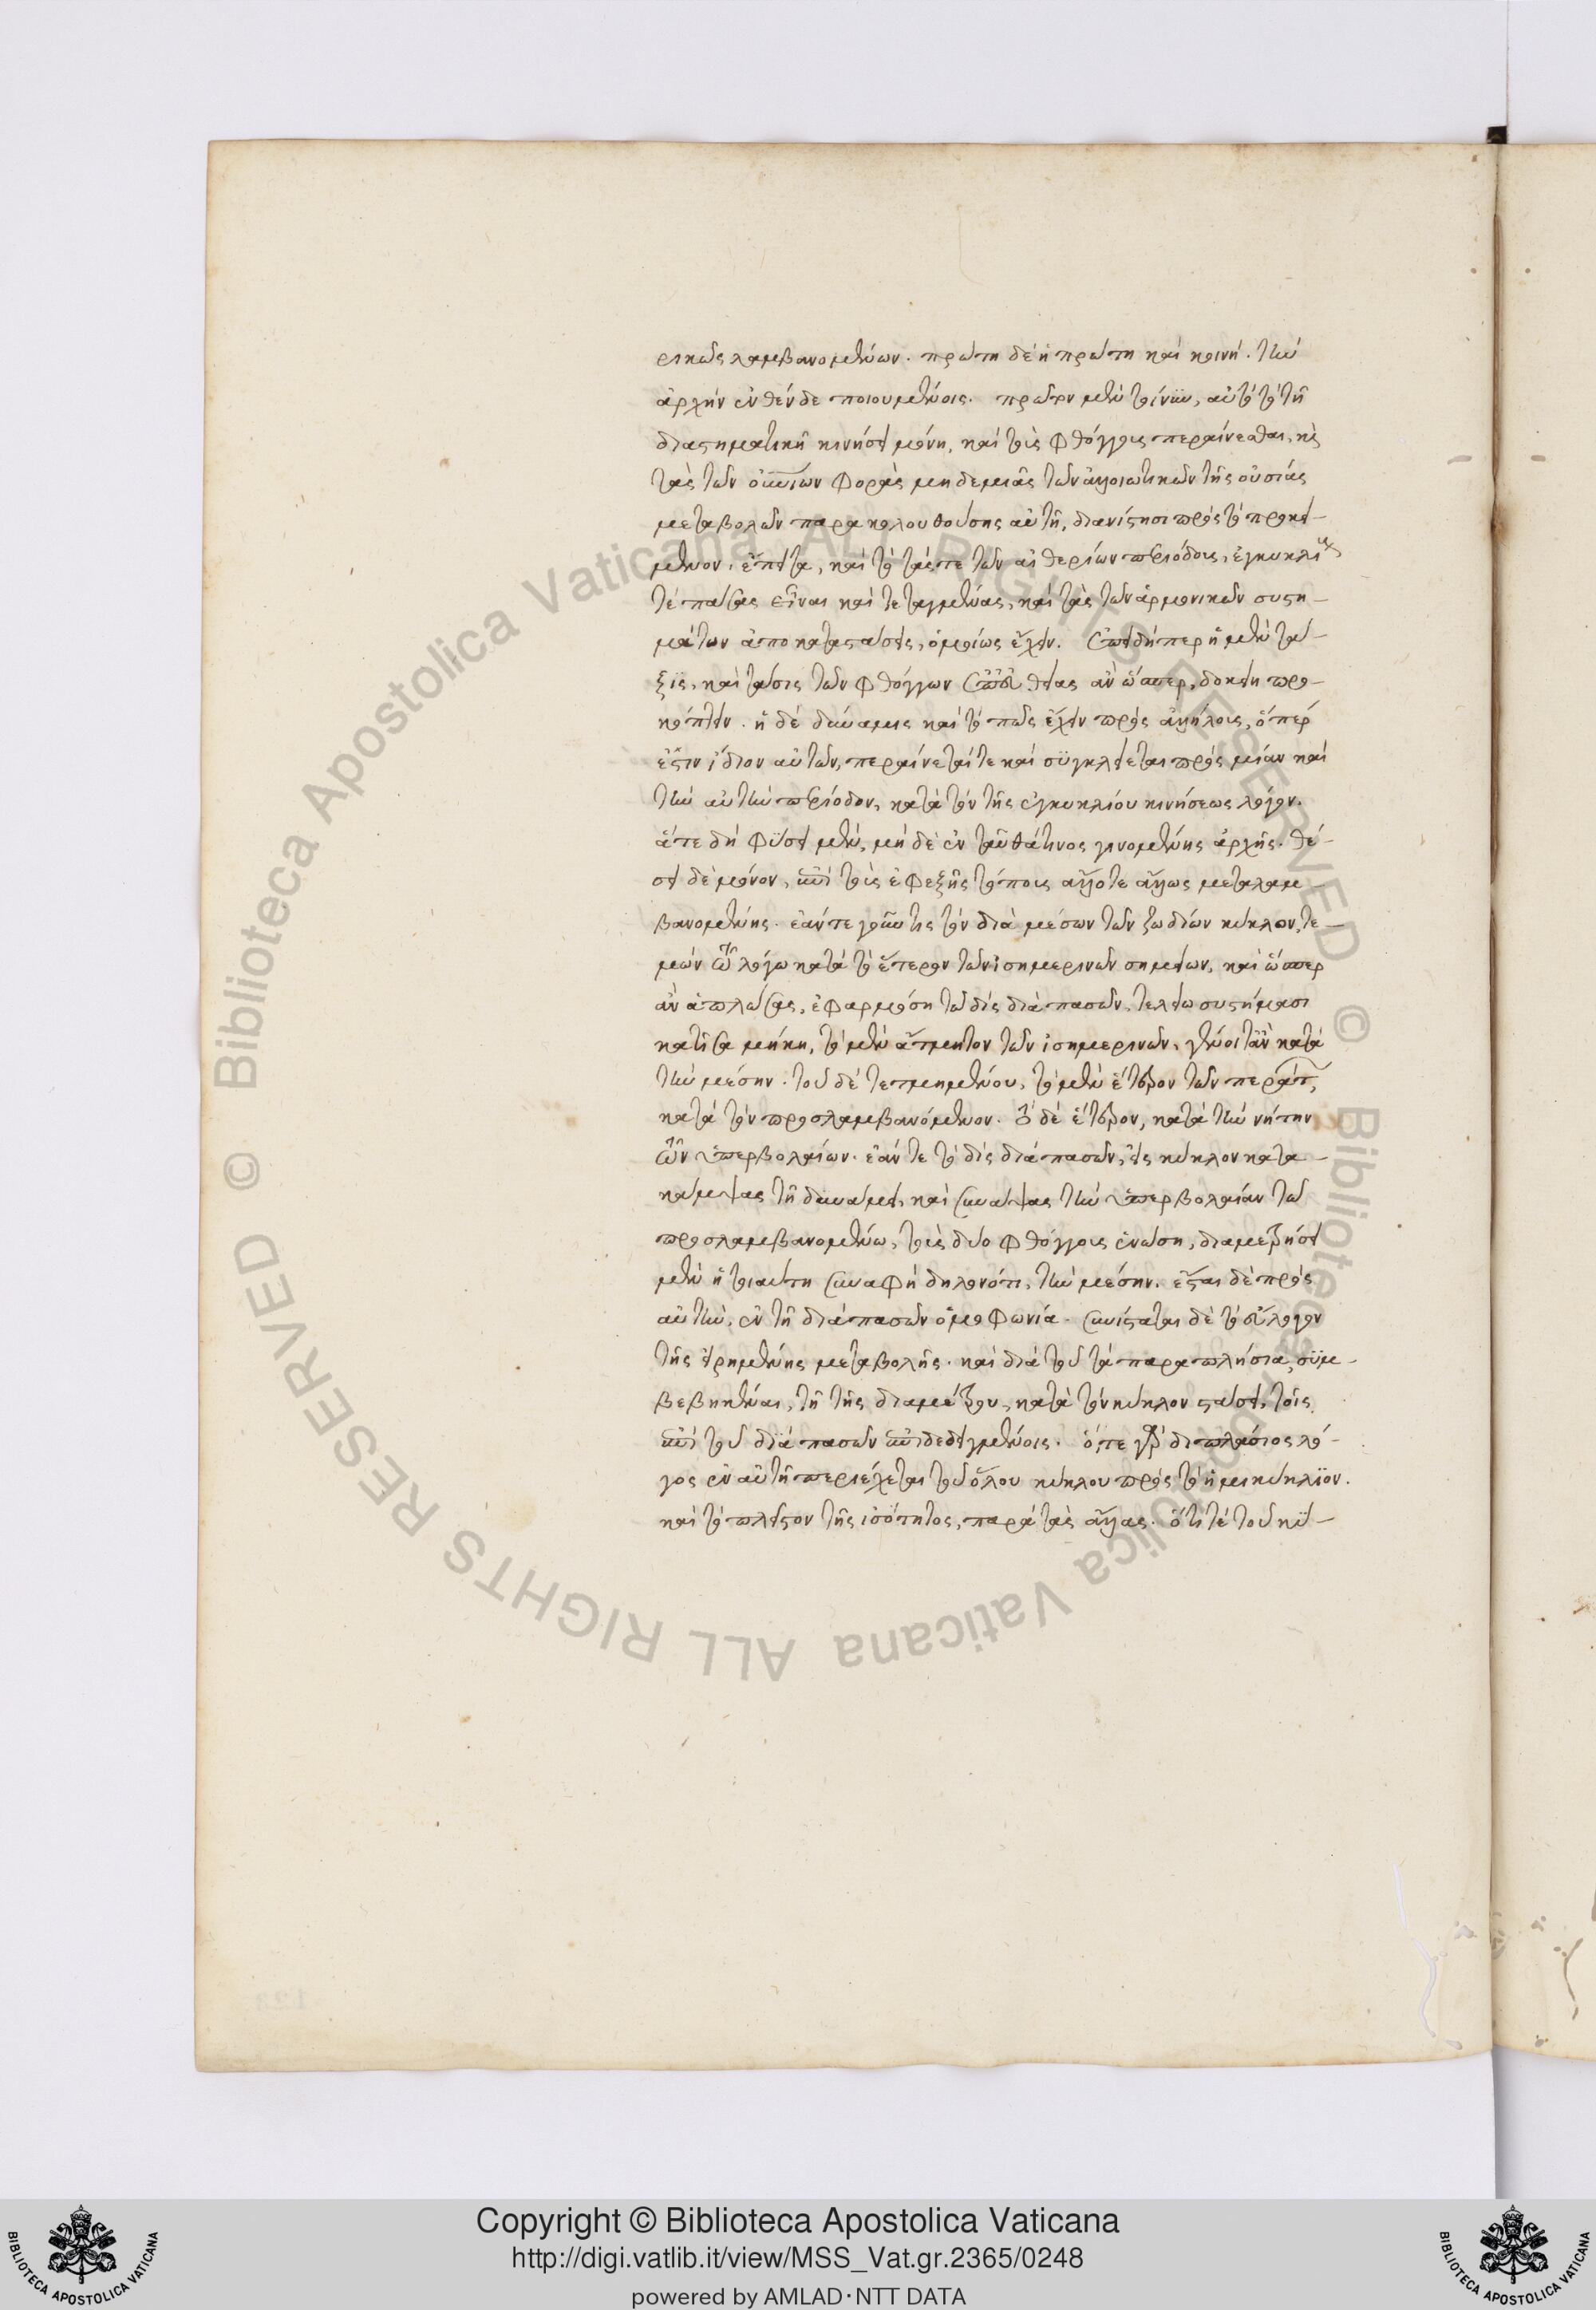 ρικῶς λαμβανομένων. πρώτη δὲ ἡ πρώτη καὶ κοινή. τὴν
ἀρχὴν ἐνθένδε ποιουμένοις. πρῶτον μὲν τοίνυν, αὐτὸ τὸ τῇ
διαστηματικῇ κινήσει μόνῃ, καὶ τοὺς φθόγγους περαίνεσθαι, καὶ
τὰς τῶν οὐρανίων φορὰς μηδεμιᾶς τῶν ἀλλοιωτικῶν τῆς οὐσίας
μεταβολῶν παρακολουθούσης αὐτῇ, διανίστησι πρὸς τὸ προκεί-
μενον. ἔπειτα, καὶ τὸ τάς τε τῶν αἰθερίων περιόδους, ἐγκυκλίους
τὲ πάσας εἶναι καὶ τεταγμένας, καὶ τὰς τῶν ἁρμονικῶν συστη-
μάτων ἀποκαταστάσεις, ὁμοίως ἔχειν. ἐπειδήπερ ἡ μὲν τά-
ξις, καὶ τάσις τῶν φθόγγων ἐπ' εὐθείας ἂν ὥσπερ, δοκείη προ-
κόπτειν. ἡ δὲ δύναμις καὶ τὸ πῶς ἔχειν πρὸς ἀλλήλους, ὅπερ
ἐστὶν ἴδιον αὐτῶν, περαίνεταί τε καὶ συγκλείεται πρὸς μίαν καὶ
τὴν αὐτὴν περίοδον, κατὰ τὸν τῆς ἐγκυκλίου κινήσεως λόγον.
ἅτε δὴ φύσει μὲν, μηδὲ ἐν ταῦθά τινος γινομένης ἀρχῆς. θέ-
σει δὲ μόνον, ἐπὶ τοὺς ἐφεξῆς τόπους ἄλλοτε ἄλλως μεταλαμ-
βανομένης. ἐάν τε γοῦν τις τὸν διὰ μέσων τῶν ζωδίων κύκλον, τε-
μὼν τῷ λόγῳ κατὰ τὸ ἕτερον τῶν ἰσημερινῶν σημείων, καὶ ὥσπερ
ἂν ἁπλώσας, ἐφαρμόσῃ τῷ δὶς διὰ πασῶν, τελείῳ συστήματι
κατ' ἴσα μήκη, τὸ μὲν ἄτμητον τῶν ἰσημερινῶν, γένοιτ' ἂν κατὰ
τὴν μέσην. τοῦ δὲ τετμημένου, τὸ μὲν ἕτερον τῶν περάτων,
κατὰ τὸν προσλαμβανόμενον. τὸ δὲ ἕτερον, κατὰ τὴν νήτην
τῶν ὑπερβολαίων. ἐάν τε τὸ δὶς διὰ πασῶν, εἰς κύκλον κατα-
κάμψας τῇ δυνάμει, καὶ συνάψας τὴν ὑπερβολαίαν τῷ
προσλαμβανομένῳ, τοὺς δύο φθόγγους ἑνώσῃ, διαμετρήσει
μὲν ἡ τοιαύτη συναφὴ δηλονότι, τὴν μέσην. ἔσται δὲ πρὸς
αὐτὴν, ἐν τῇ διὰ πασῶν ὁμοφωνίᾳ. συνίσταται δὲ τὸ εὔλογον
τῆς εἰρημένης μεταβολῆς. καὶ διὰ τοῦ τὰ παραπλήσια, συμ-
βεβηκέναι, τῇ τῆς διαμέτρου, κατὰ τὸν κύκλον στάσει, τοῖς
ἐπὶ τοῦ διὰ πασῶν ἐπιδεδειγμένοις. ὅ,τε γὰρ διπλάσιος λό-
γος ἐν αὐτῇ περιέχεται τοῦ ὅλου κύκλου πρὸς τὸ ἡμικύκλιον.
καὶ τὸ πλεῖστον τῆς ἰσότητος, παρὰ τὰς ἄλλας. ὅτι τὲ τοῦ κύ-
© Biblioteca Apostolica Vaticana ALL RIGHTS RESERVED © Biblioteca Apostolica Vaticana ALL RIGHTS RESERVED
Copyright © Biblioteca Apostolica Vaticana
http://digi.vatlib.it/view/MSS_Vat.gr.2365/0248
powered by AMLAD·NTT DATA
BIBLIOTECA APOSTOLICA VATICANA
BIBLIOTECA APOSTOLICA VATICANA